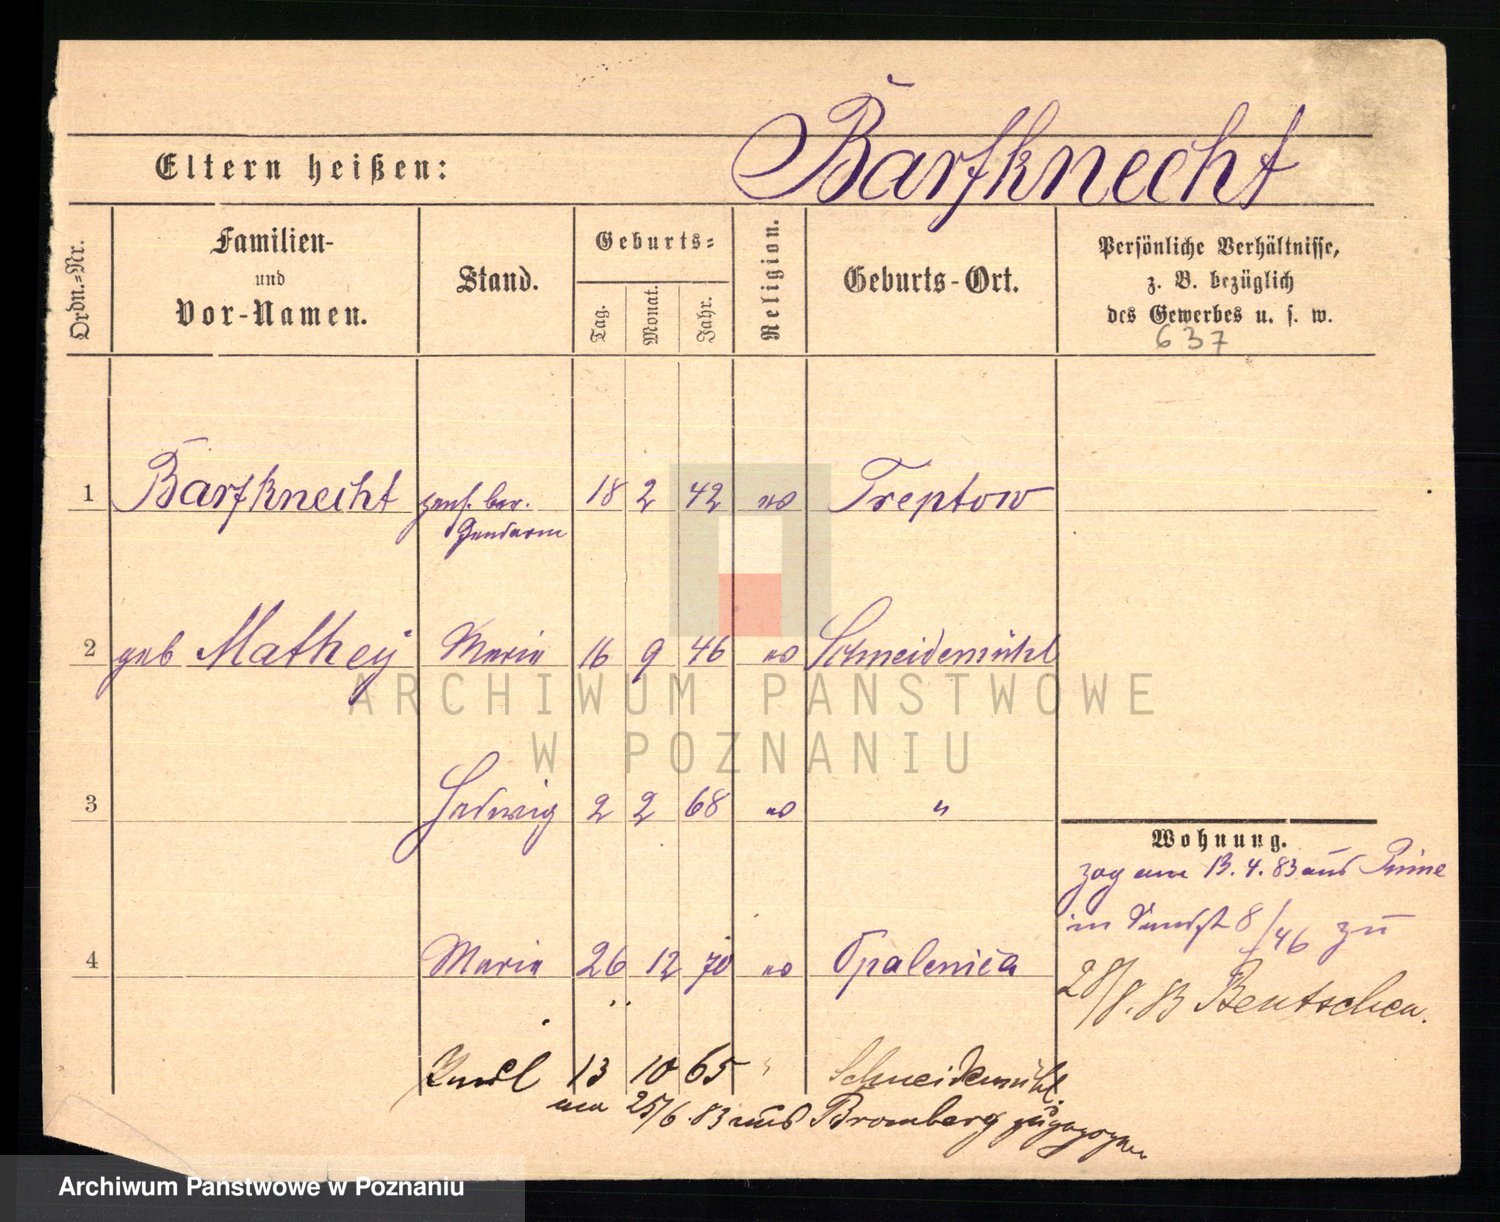 Barfknecht
Eltern heißen:
Ordn.-Nr.
Familien-
und
Vor-Namen.
Stand.
Geburts-
Tag.
Monat.
Jahr.
Religion.
Geburts-Ort.
Persönliche Verhältnisse,
z. B. bezüglich
des Gewerbes u. s. w.
637
1 Barfknecht pens. ber. 18 2 42 ev Treptow
Gendarm
2 geb Mathey Maria 16 9 46 ev Schneidemühl
ARCHIWUM PAŃSTWOWE
W POZNANIU
3 Hedwig 2 2 68 ev "
4 Maria 26 12 70 ev Opalenica
13 10 65 " Schneidemühl.
am 25/6.83 aus Bromberg zugezogen
Wohnung.
zog am 13.4.83 aus Pinne
in 8/46 zu
28/8.83 Bentschen.
Archiwum Państwowe w Poznaniu